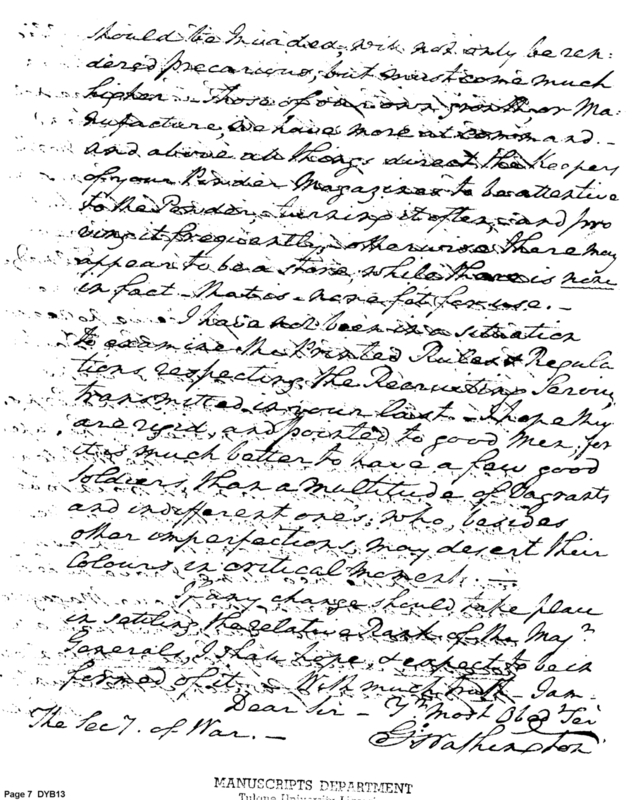 should be Invaded, will not only be ren:
dered precarious, but must come much
higher. Those of our own growth, or Ma:
nufacture, we have more at command.-
and above all things direct the Keepers
of your Powder Magazines to be attentive
to the Powder, turning it often, and pro
ving it frequently, otherwise there may
appear to be a store, while there is none
in fact - that is - none fit for use.-
I have not been in a situation
to examine the Printed Rules & Regula
tions, respecting the Recruiting Service
transmitted in your last. I hope they
are rigid, and pointed to good men, for
it is much better to have a few good
Soldiers, than a multitude of Vagrants
and indifferent one's, who, besides
other imperfections, may desert their
Colours in critical moments.-
If any change should take place
in settling the relative Rank of the Majr
Generals, I shall hope, & expect to be in
formed of it. With much truth - I am-
Dear Sir - Yr most Obedt Ser
The Secy. of War.-
Go Washington
MANUSCRIPTS DEPARTMENT
Page 7 DYB13